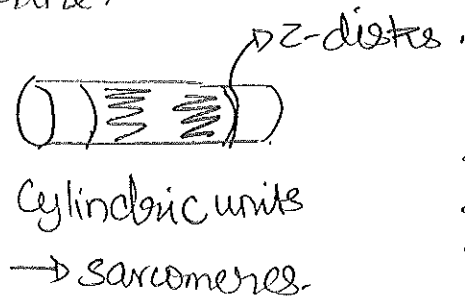 Z-disks.
Cylindric units
→ sarcomeres.